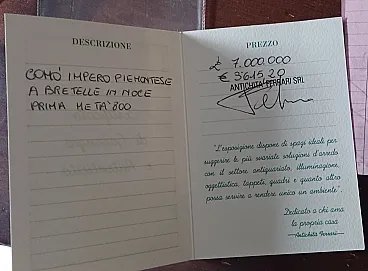 DESCRIZIONE
COMO' IMPERO PIEMONTESE
A BRETELLE IN NOCE
PRIMA META' 800
PREZZO
£ 7.000.000
€ 3615,20
ANTICHITÀ FERRARI SRL
"L'esposizione dispone di spazi ideali per
suggerire le più svariate soluzioni d'arredo
con il settore antiquariato, illuminazione,
oggettistica, tappeti, quadri e quanto altro
possa servire a rendere unico un ambiente".
Dedicato a chi ama
la propria casa
Antichità Ferrari